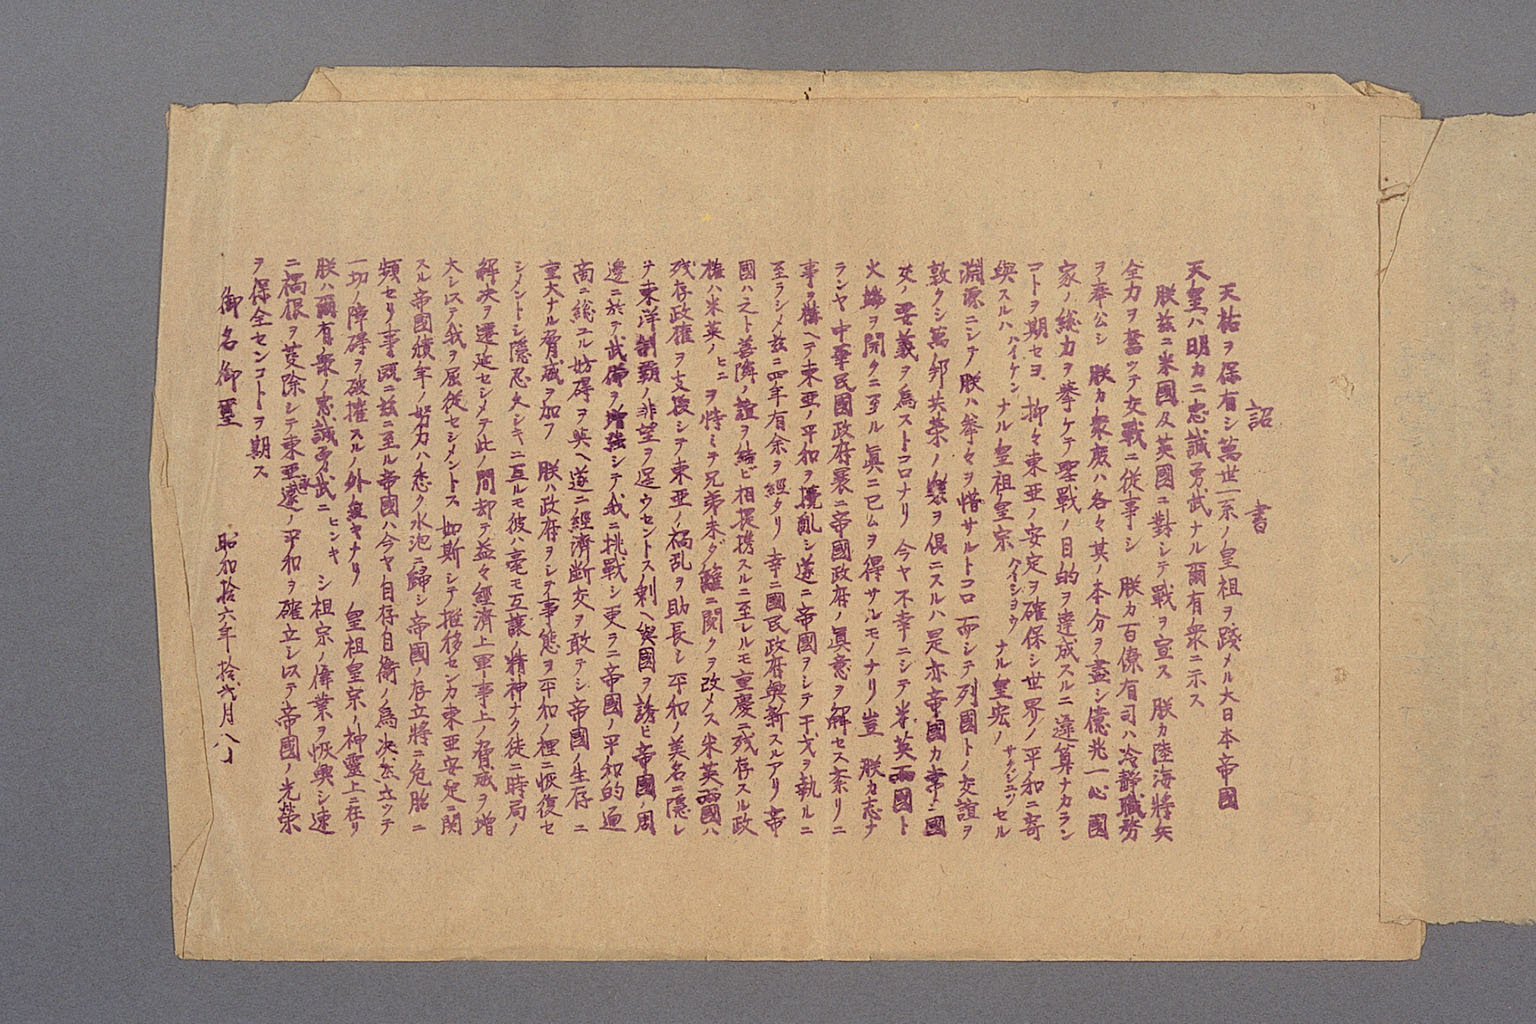 詔　書
天祐ヲ保有シ萬世一系ノ皇祖ヲ踐メル大日本帝國
天皇ハ明カニ忠誠勇武ナル爾有衆ニ示ス
朕茲ニ米國及英國ニ對シテ戰ヲ宣ス　朕カ陸海將兵
全力ヲ奮ッテ交戰ニ從事シ　朕カ百僚有司ハ冷靜職務
ヲ奉公シ　朕カ衆庶ハ各々其ノ本分ヲ盡シ億兆一心國
家ノ総力ヲ挙ケテ聖戰ノ目的ヲ達成スルニ違算ナカラン
コトヲ期セヨ　抑々東亜ノ安定ヲ確保シ世界ノ平和ニ寄
與スルハハイケン　ナル皇祖皇宗　ハイショウ　ナル皇宏ノ　サクジュツ　セル
淵源ニシテ　朕ハ挙々ヲ惜サルトコロ　而シテ列國トノ交誼ヲ
敦クシ萬邦共榮ノ樂ヲ倶ニスルハ是亦帝國カ常ニ國
交ノ要義ヲ為ストコロナリ　今ヤ不幸ニシテ米英両國ト
火端ヲ開クニ至ル眞ニ已ムヲ得サルモノナリ豈　朕カ志ナ
ランヤ中華民國政府曩ニ帝國政府ノ眞意ヲ解セス紊リニ
事ヲ構ヘテ東亜ノ平和ヲ攪亂シ遂ニ帝國ヲシテ干戈ヲ執ルニ
至ラシメ茲ニ四年有余ヲ經タリ　幸ニ國民政府興新スルアリ　帝
國ハ之ト善隣ノ誼ヲ結ビ相提携スルニ至レルモ重慶ニ残存スル政
権ハ米英ノヒニ　ヲ恃ミテ兄弟未ダ籬ニ閲クヲ改メス米英両國ハ
残存政權ヲ支援シテ東亜ノ禍乱ヲ助長シ平和ノ美名ニ隠レ
テ東洋制覇ノ非望ヲ逞ウセントス剰ヘ與國ヲ誘ヒ帝國ノ周
邊ニ於テ武備ヲ増強シテ我ニ挑戰シ更ヲニ帝國ノ平和的通
商ニ総ユル妨碍ヲ與ヘ遂ニ經濟断交ヲ敢テシ帝國ノ生存ニ
重大ナル脅威ヲ加フ　朕ハ政府ヲシテ事態ヲ平和ノ裡ニ恢復セ
シメントシ隠忍久シキニ亙ルモ彼ハ毫モ互譲ノ精神ナク徒ニ時局ノ
解決ヲ遷延セシメテ此ノ間却テ益々經濟上軍事上ノ脅威ヲ増
大シ以テ我ヲ屈從セシメントス　如斯シテ推移センカ東亜安定ニ関
スル帝國積年ノ努力ハ悉ク水泡ニ歸シ帝國ノ存立將ニ危胎ニ
頻セリ事既ニ茲ニ至ル帝國ハ今ヤ自存自衛ノ為決然立ッテ
一切ノ障碍ヲ破摧スルノ外無キナリ　皇祖皇宗ノ神靈上ニ在リ
朕ハ爾有衆ノ忠誠勇武ニヒンキ　シ祖宗ノ偉業ヲ恢興シ速
ニ禍根ヲ芟除シテ東亜永遠ノ平和ヲ確立シ以テ帝國ノ光榮
ヲ保全センコトヲ期ス
御名御璽　　昭和拾六年拾弐月八日